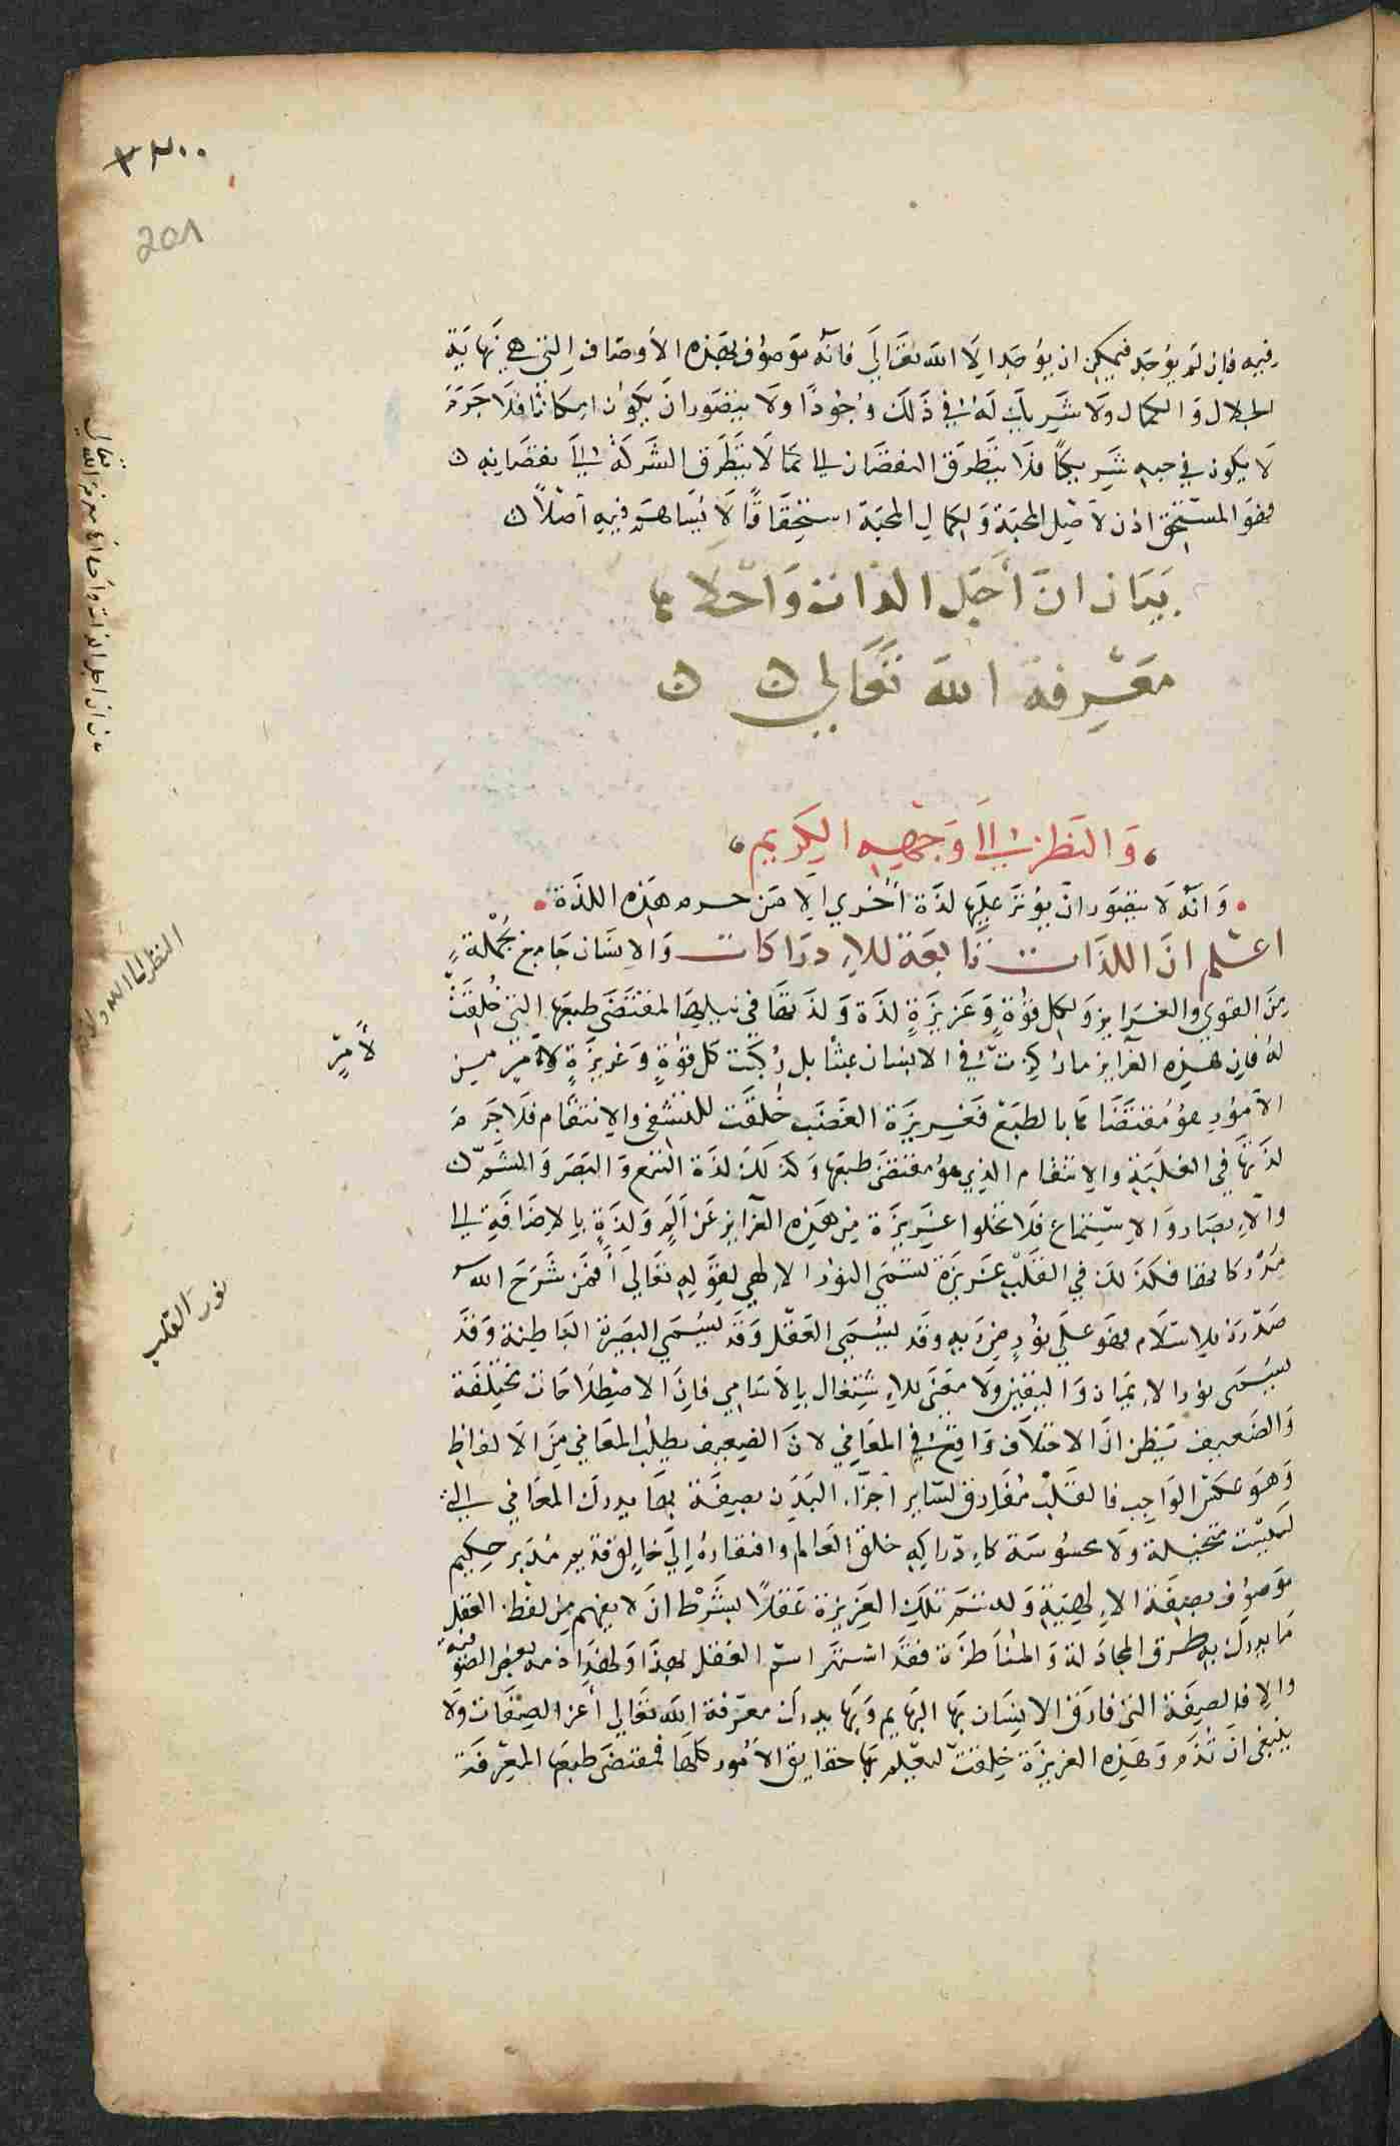 ٢٣٠٠
201
فيه فان لم يوجد فيمكن ان يوجد الا الله تعالى فانه موصوف بهذه الاوصاف التي هي نهاية
الجلال والكمال ولا شريك له في ذلك وجودا ولا يتصور ان يكون امكانا فلا جرم
لا يكون في حبه شريكا فلا يتطرق النقصان الى كما لا يتطرق الشركة الى نقصانه ن
فهو المستحق اذن لاصل المحبة ولكمال المحبة استحقاقا لا يساهم فيه اصلا ن
بيان ان أجل اللذات واحلاها
معرفة الله تعالى ن ن
والنظر الى وجهه الكريم
وانه لا يتصور ان يؤثر عليها لذة أخرى الا من حرم هذه اللذة
اعلم ان اللذات تابعة للادراكات والانسان جامع لجملة
من القوى والغرايز ولكل قوة وغريزة لذة ولذتها في نيلها لمقتضى طبعها التي خلقت
له فان هذه الغرايز ما ركزت في الانسان عبثا بل ركبت كل قوة وغريزة لامر من
الامور هو مقتضاها بالطبع فغريزة الغضب خلقت للتشفي والانتقام فلا جرم
لذتها في الغلبة والانتقام الذي هو مقتضى طبعها وكذلك لذة السمع والبصر والشم ن
والابصار والاستماع فلا تخلوا غريزة من هذه الغرايز عن ألم ولذة بالاضافة الى
مدركاتها فكذلك في القلب غريزة تسمى النور الالهي لقوله تعالى أفمن شرح الله
صدره للاسلام فهو على نور من ربه وقد يسمى العقل وقد يسمى البصيرة الباطنة وقد
يسمى نور الايمان واليقين ولا معنى للاشتغال بالاسامي فان الاصطلاحات مختلفة
والضعيف يظن ان الاختلاف واقع في المعاني لان الضعيف يطلب المعاني من الالفاظ
وهو عكس الواجب فالقلب مفارق لساير اجزاء البدن بصفة بها يدرك المعاني التي
ليست متخيلة ولا محسوسة كادراكه خلق العالم وافتقاره الى خالق قديم مدبر حكيم
موصوف بصفة الالهية ولنسم تلك الغريزة عقلا بشرط ان لا يفهم من لفظ العقل
ما يدرك به طرق المجادلة والمناظرة فقد اشتهر اسم العقل بهذا ولهذا ذمه بعض الصوفية
والا فالصفة التي فارق الانسان بها البهايم وبها يدرك معرفة الله تعالى أعز الصفات ولا
ينبغي ان تذم وهذه الغريزة خلقت ليعلم بها حقايق الامور كلها فمقتضى طبعها المعرفة
ن ان اجل اللذات واحلاها معرفة الله تعالى
النظر الى الله
لأمرٍ
نور القلب